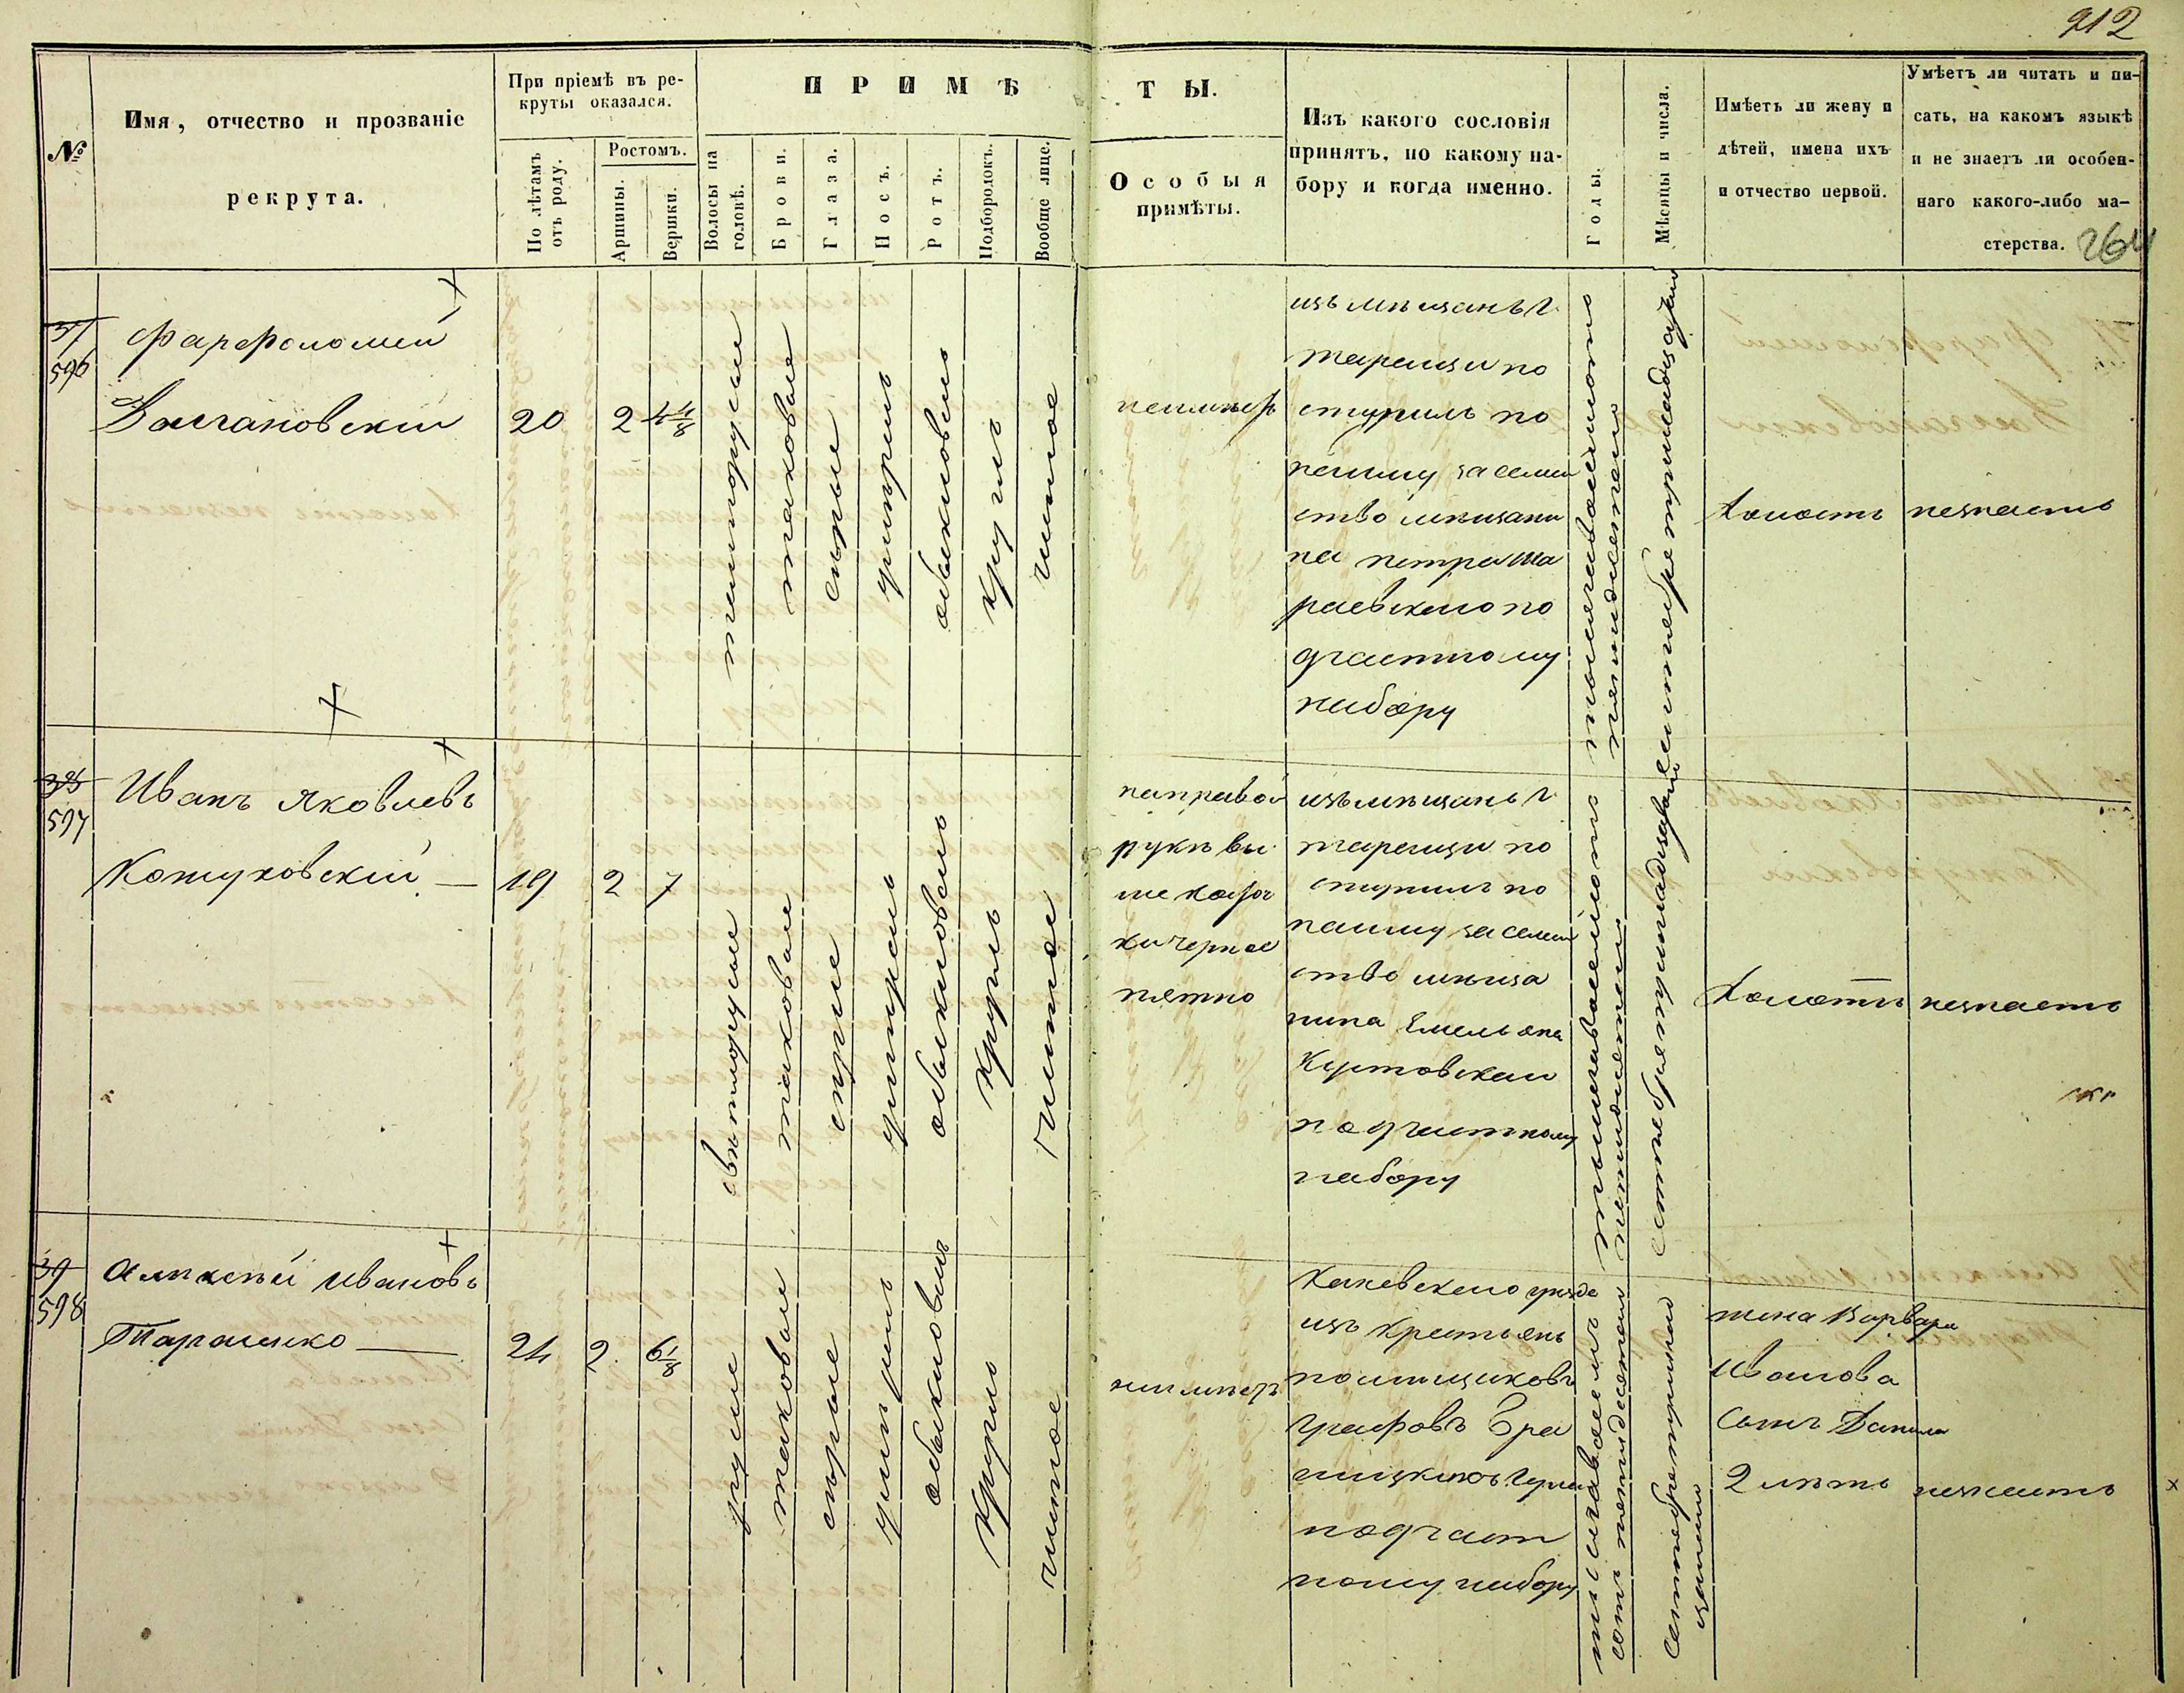 212
№
Имя, отчество и прозваніе
рекрута.
При пріемѣ въ ре-
круты оказался.
По лѣтамъ
отъ роду.
Ростомъ.
Аршины.
Вершки.
ПРИМѢ
ТЫ.
Волосы на
головѣ.
Брови.
Глаза.
Носъ.
Ротъ.
Подбородокъ.
Вообще лице.
Особыя
примѣты.
Изъ какого сословія
принятъ, по какому на-
бору и когда именно.
Годы.
Мѣсяцы и числа.
Имѣетъ ли жену и
дѣтей, имена ихъ
и отчество первой.
Умѣетъ ли читать и пи-
сать, на какомъ языкѣ
и не знаетъ ли особен-
наго какого-либо ма-
стерства.
264
37
596
Фарфоломей
20
2
4 4/8
темнорусые
таковые
сѣрые
умѣренъ
обыкновенъ
круглъ
чистое
неимѣетъ
изъ мѣщанъ г.
таращи по
ступилъ по
найму за семей
ство мѣщани
на петра
раевскаго по
дчастному
набору
тысяча восемьсотъ
пятидесятаго
сентября тринадцатаго
холостъ
незнаетъ
38
597
Иванъ Яковлевъ
Кожуховскій
19
2
7
свѣтлорусые
таковые
сѣрые
умѣренъ
обыкновенъ
круглъ
чистое
направой
рукѣ вы
ше
черное
пятно
изъ мѣщанъ г.
таращи по
ступилъ по
найму за семей
ство мѣща
нина Емельяна
по дчастному
набору
тысяча восемьсотъ
сентября
холостъ
незнаетъ
39
598
Алексѣй Ивановъ
Тараненко
24
2
6 1/8
русые
таковые
сѣрые
умѣренъ
обыкновенъ
круглъ
чистое
неимѣетъ
Каневскаго уѣзда
изъ крестьянъ
помѣщиковъ
графовъ Бра
ницкихъ
подчаст
ному набору
тысяча восемь
сотъ пятидесятаго
Сентября
жена Варвара
Иванова
сынъ Данила
2 лѣтъ
незнаетъ